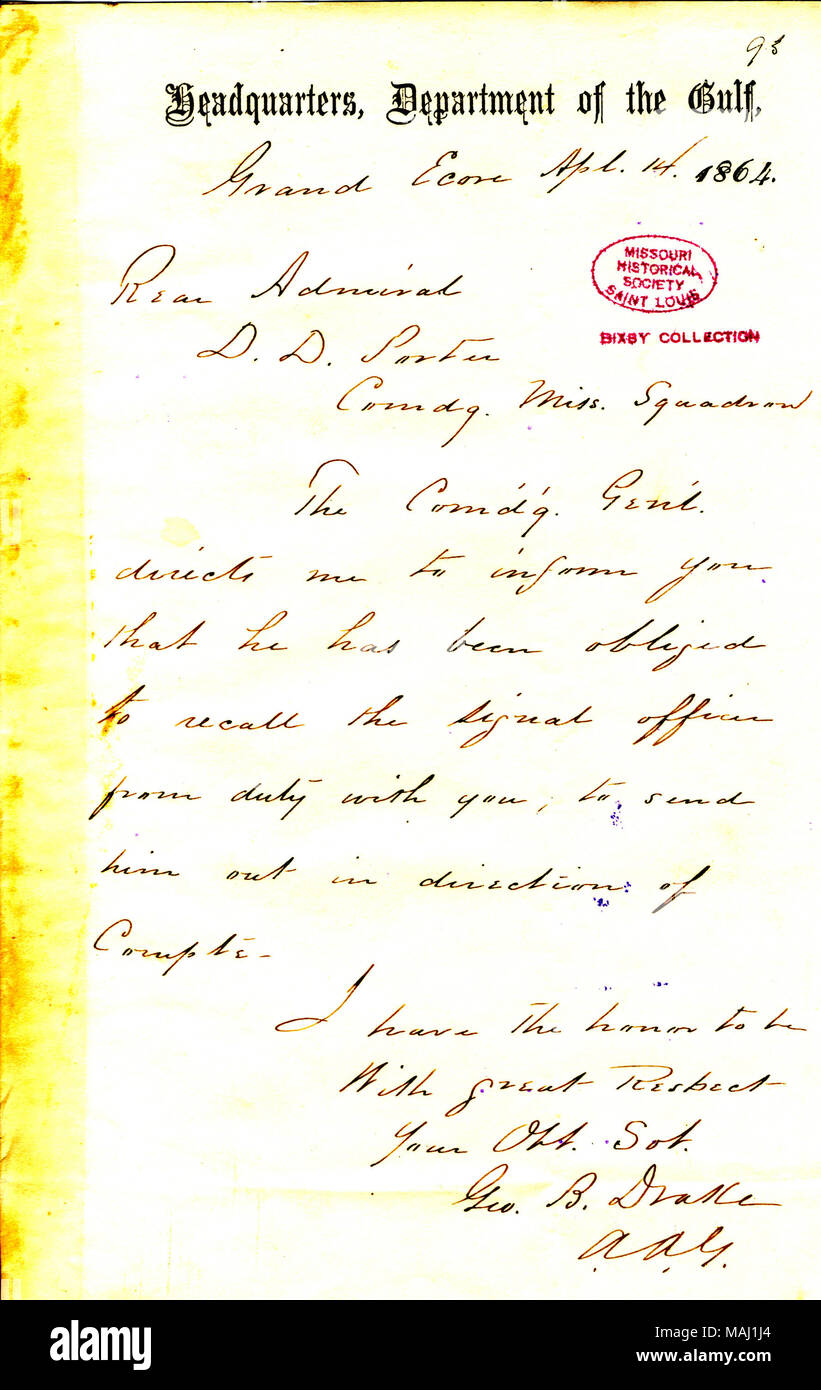 93
Headquarters, Department of the Gulf,
Grand Ecore Apl. 14. 1864.
MISSOURI
HISTORICAL
SOCIETY
SAINT LOUIS
BIXBY COLLECTION
Rear Admiral
D. D. Porter
Comdg. Miss. Squadron
The Comd'g. Gen'l.
directs me to inform you
that he has been obliged
to recall the signal officer
from duty with you, to send
him out in direction of
Compte-
I have the honor to be
With great Respect
Your Obt. Svt.
Geo. B. Drake
A.A.G.
alamy
a
alamy
Image ID: MAJ1J4
www.alamy.com